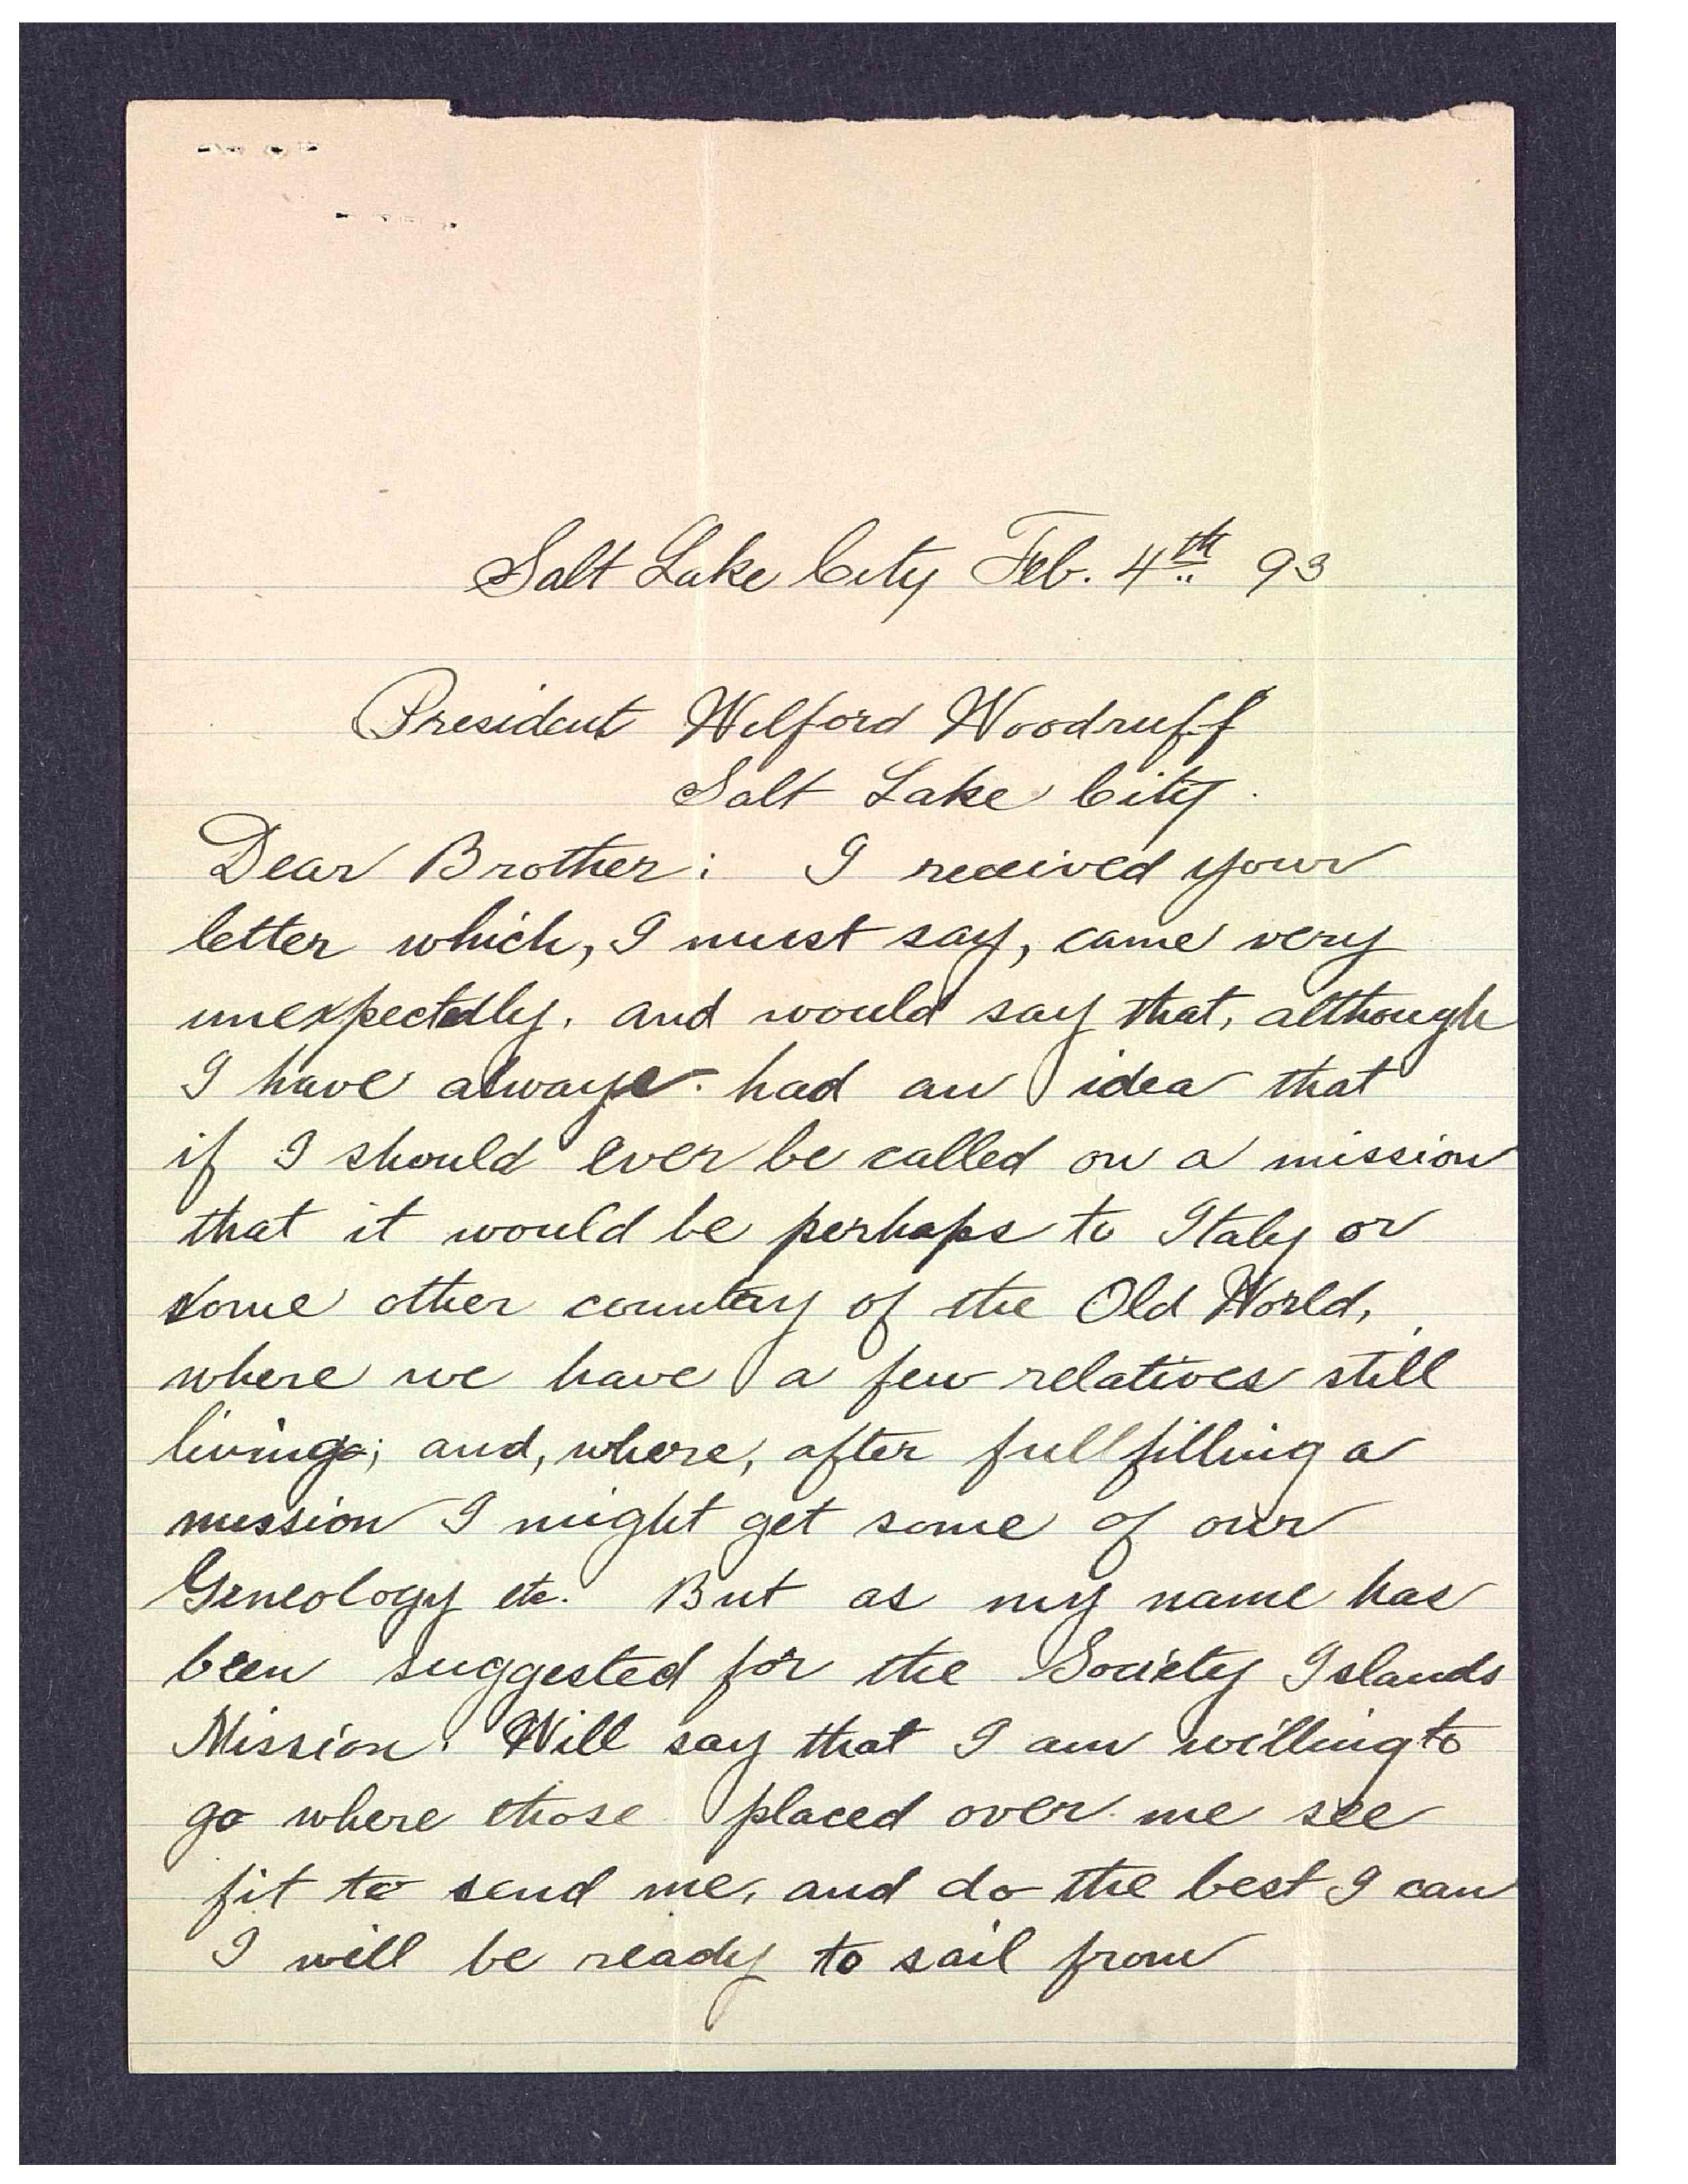 Salt Lake City Feb. 4th 93
President Wilford Woodruff
Salt Lake City.
Dear Brother: I received your
letter which, I must say, came very
unexpectedly, and would say that, although
I have always had an idea that
if I should ever be called on a mission
that it would be perhaps to Italy or
some other country of the Old World,
where we have a few relatives still
living; and, where, after fullfilling a
mission I might get some of our
Geneology etc. But as my name has
been suggested for the Society Islands
Mission. Will say that I am willing to
go where those placed over me see
fit to send me, and do the best I can
I will be ready to sail from